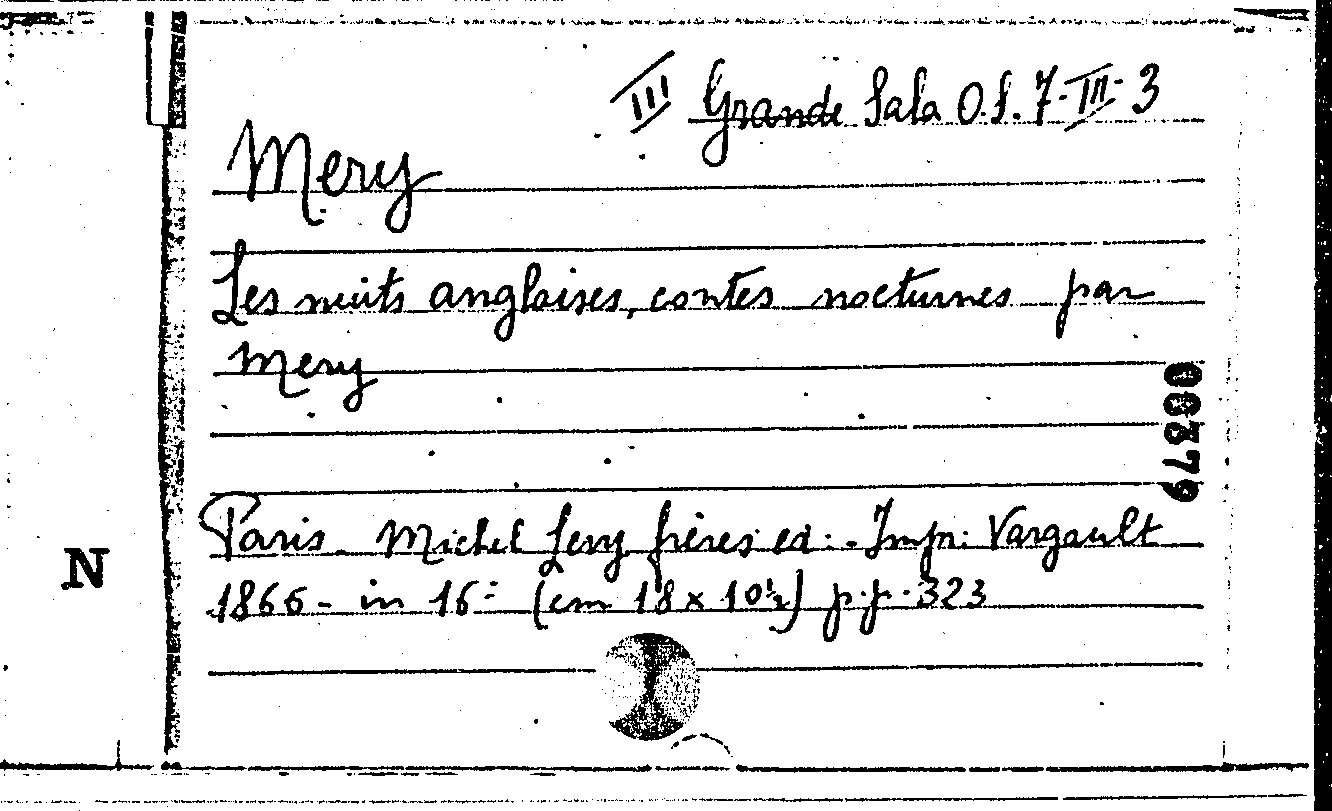 III Grande Sala O.S. 7-III-3
Mery
Les nuits anglaises, contes nocturnes par
Mery
00379
Paris - Michel Levy frères ed: - Imp: Vargault
1866 - in 16° (cm 18 x 10½) p.p. 323
N